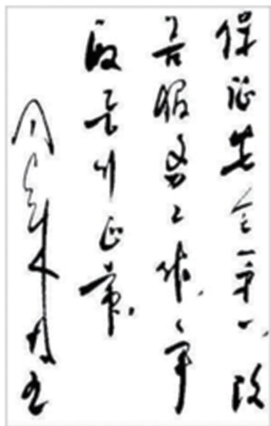 保证安全第一，改
善服务工作，争
取飞行正常。
周恩来